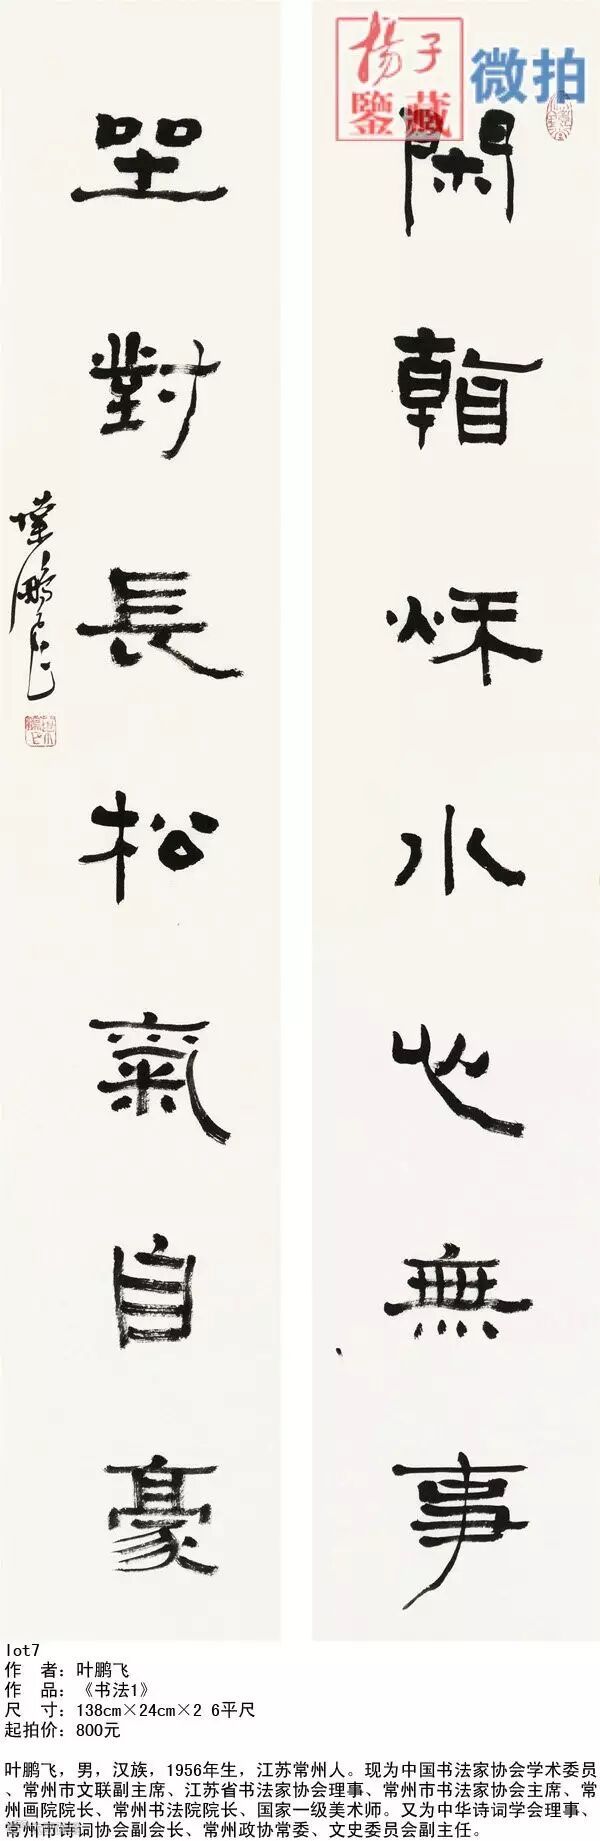 杨子
鑒藏
微拍
閑臨秋水心無事
坐對長松氣自豪
葉鵬飛
lot7
作 者：叶鹏飞
作 品：《书法1》
尺 寸：138cm×24cm×2 6平尺
起拍价：800元
叶鹏飞，男，汉族，1956年生，江苏常州人。现为中国书法家协会学术委员
、常州市文联副主席、江苏省书法家协会理事、常州市书法家协会主席、常
州画院院长、常州书法院院长、国家一级美术师。又为中华诗词学会理事、
常州市诗词协会副会长、常州政协常委、文史委员会副主任。